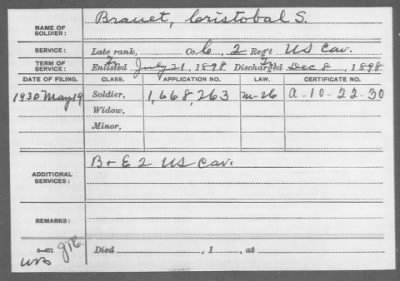 NAME OF SOLDIER: Brauet, Cristobal S.
SERVICE: Late rank, Co. C, 2 Regt US Cav.
TERM OF SERVICE: Enlisted July 21, 1898 Discharged Dec 8, 1898
DATE OF FILING. CLASS. APPLICATION NO. LAW. CERTIFICATE NO.
1930 May 19 Soldier, 1,668,263 M-26 A-10-22-30
Widow,
Minor,
ADDITIONAL SERVICES: B + E 2 US Cav.
REMARKS:
Died , 1 , at